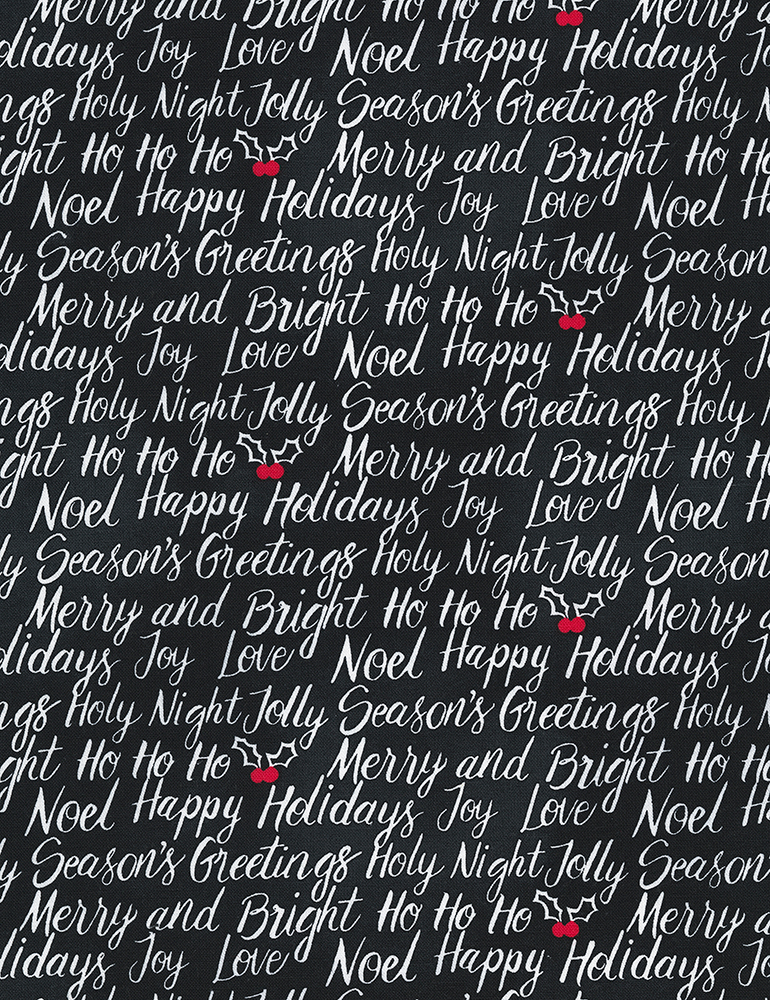 Merry and Bright Ho Ho Ho Merry
olidays Joy Love Noel Happy Holidays J
ngs Holy Night Jolly Season's Greetings Holy N
ight Ho Ho Ho Merry and Bright Ho H
Noel Happy Holidays Joy Love Noel H
ly Season's Greetings Holy Night Jolly Season
Merry and Bright Ho Ho Ho Merry a
olidays Joy Love Noel Happy Holidays J
ngs Holy Night Jolly Season's Greetings Holy N
ight Ho Ho Ho Merry and Bright Ho H
Noel Happy Holidays Joy Love Noel H
ly Season's Greetings Holy Night Jolly Season
Merry and Bright Ho Ho Ho Merry a
olidays Joy Love Noel Happy Holidays J
ngs Holy Night Jolly Season's Greetings Holy N
ght Ho Ho Ho Merry and Bright Ho H
Noel Happy Holidays Joy Love Noel H
y Season's Greetings Holy Night Jolly Season
Merry and Bright Ho Ho Ho Merry a
lidays Joy Love Noel Happy Holidays
gs Holy Night Jolly Season's Greetings Holy N